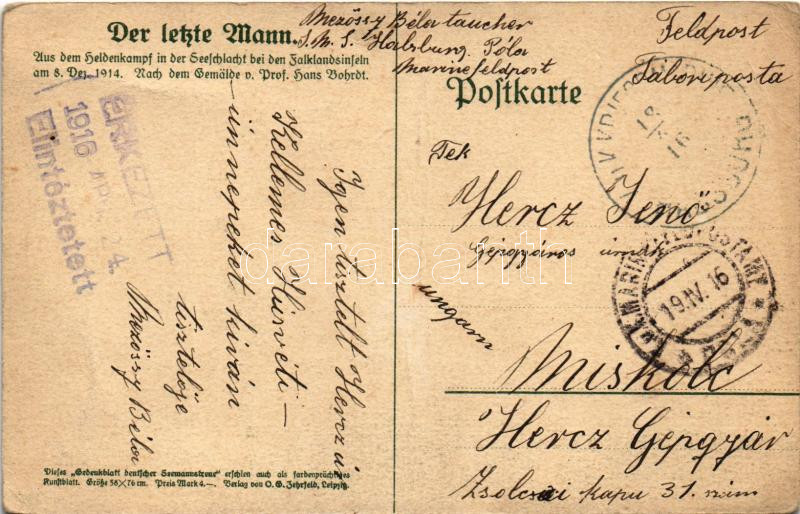 Der letzte Mann.
Aus dem Heldenkampf in der Seeschlacht bei den Falklandsinseln
am 8. Dez. 1914. Nach dem Gemälde v. Prof. Hans Bohrdt.
Mezőssy Béla taucher
S.M.S. Habsburg Póla
Marinefeldpost
Feldpost
Tábori posta
Postkarte
ÉRKEZETT
1916 APR. 24.
Elintéztetett
18/4 16
K.u.K. MARINEFELDPOSTAMT
19.IV.16
POLA
Tek
Hercz Jenő
Gépgyáros úrnak
ungarn
Miskolc
Hercz Gépgyár
Zsolcai kapu 31. szám
Igen tisztelt Hercz úr
Kellemes Húsvéti
ünnepeket kiván
tisztelője
Mezőssy Béla
darabanth
Dieses „Gedenkblatt deutscher Seemannstreue“ erschien auch als farbenprächtiges
Kunstblatt. Größe 58×76 cm. Preis Mark 4.—. Verlag von O. G. Zehrfeld, Leipzig.